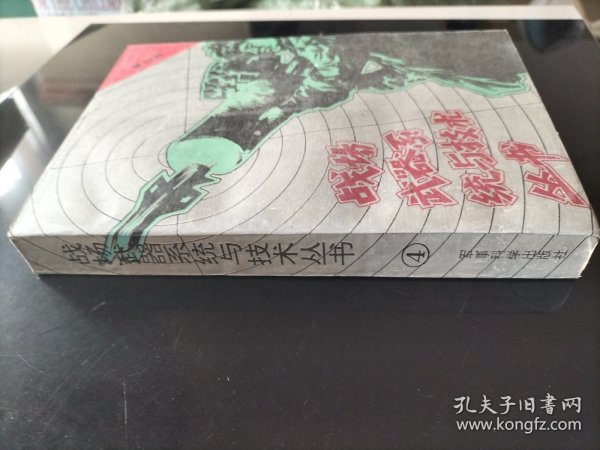 战场
武器系
统与技术
丛书
战场武器系统与技术丛书 ④ 军事科学出版社
孔夫子旧书网
www.kongfz.com